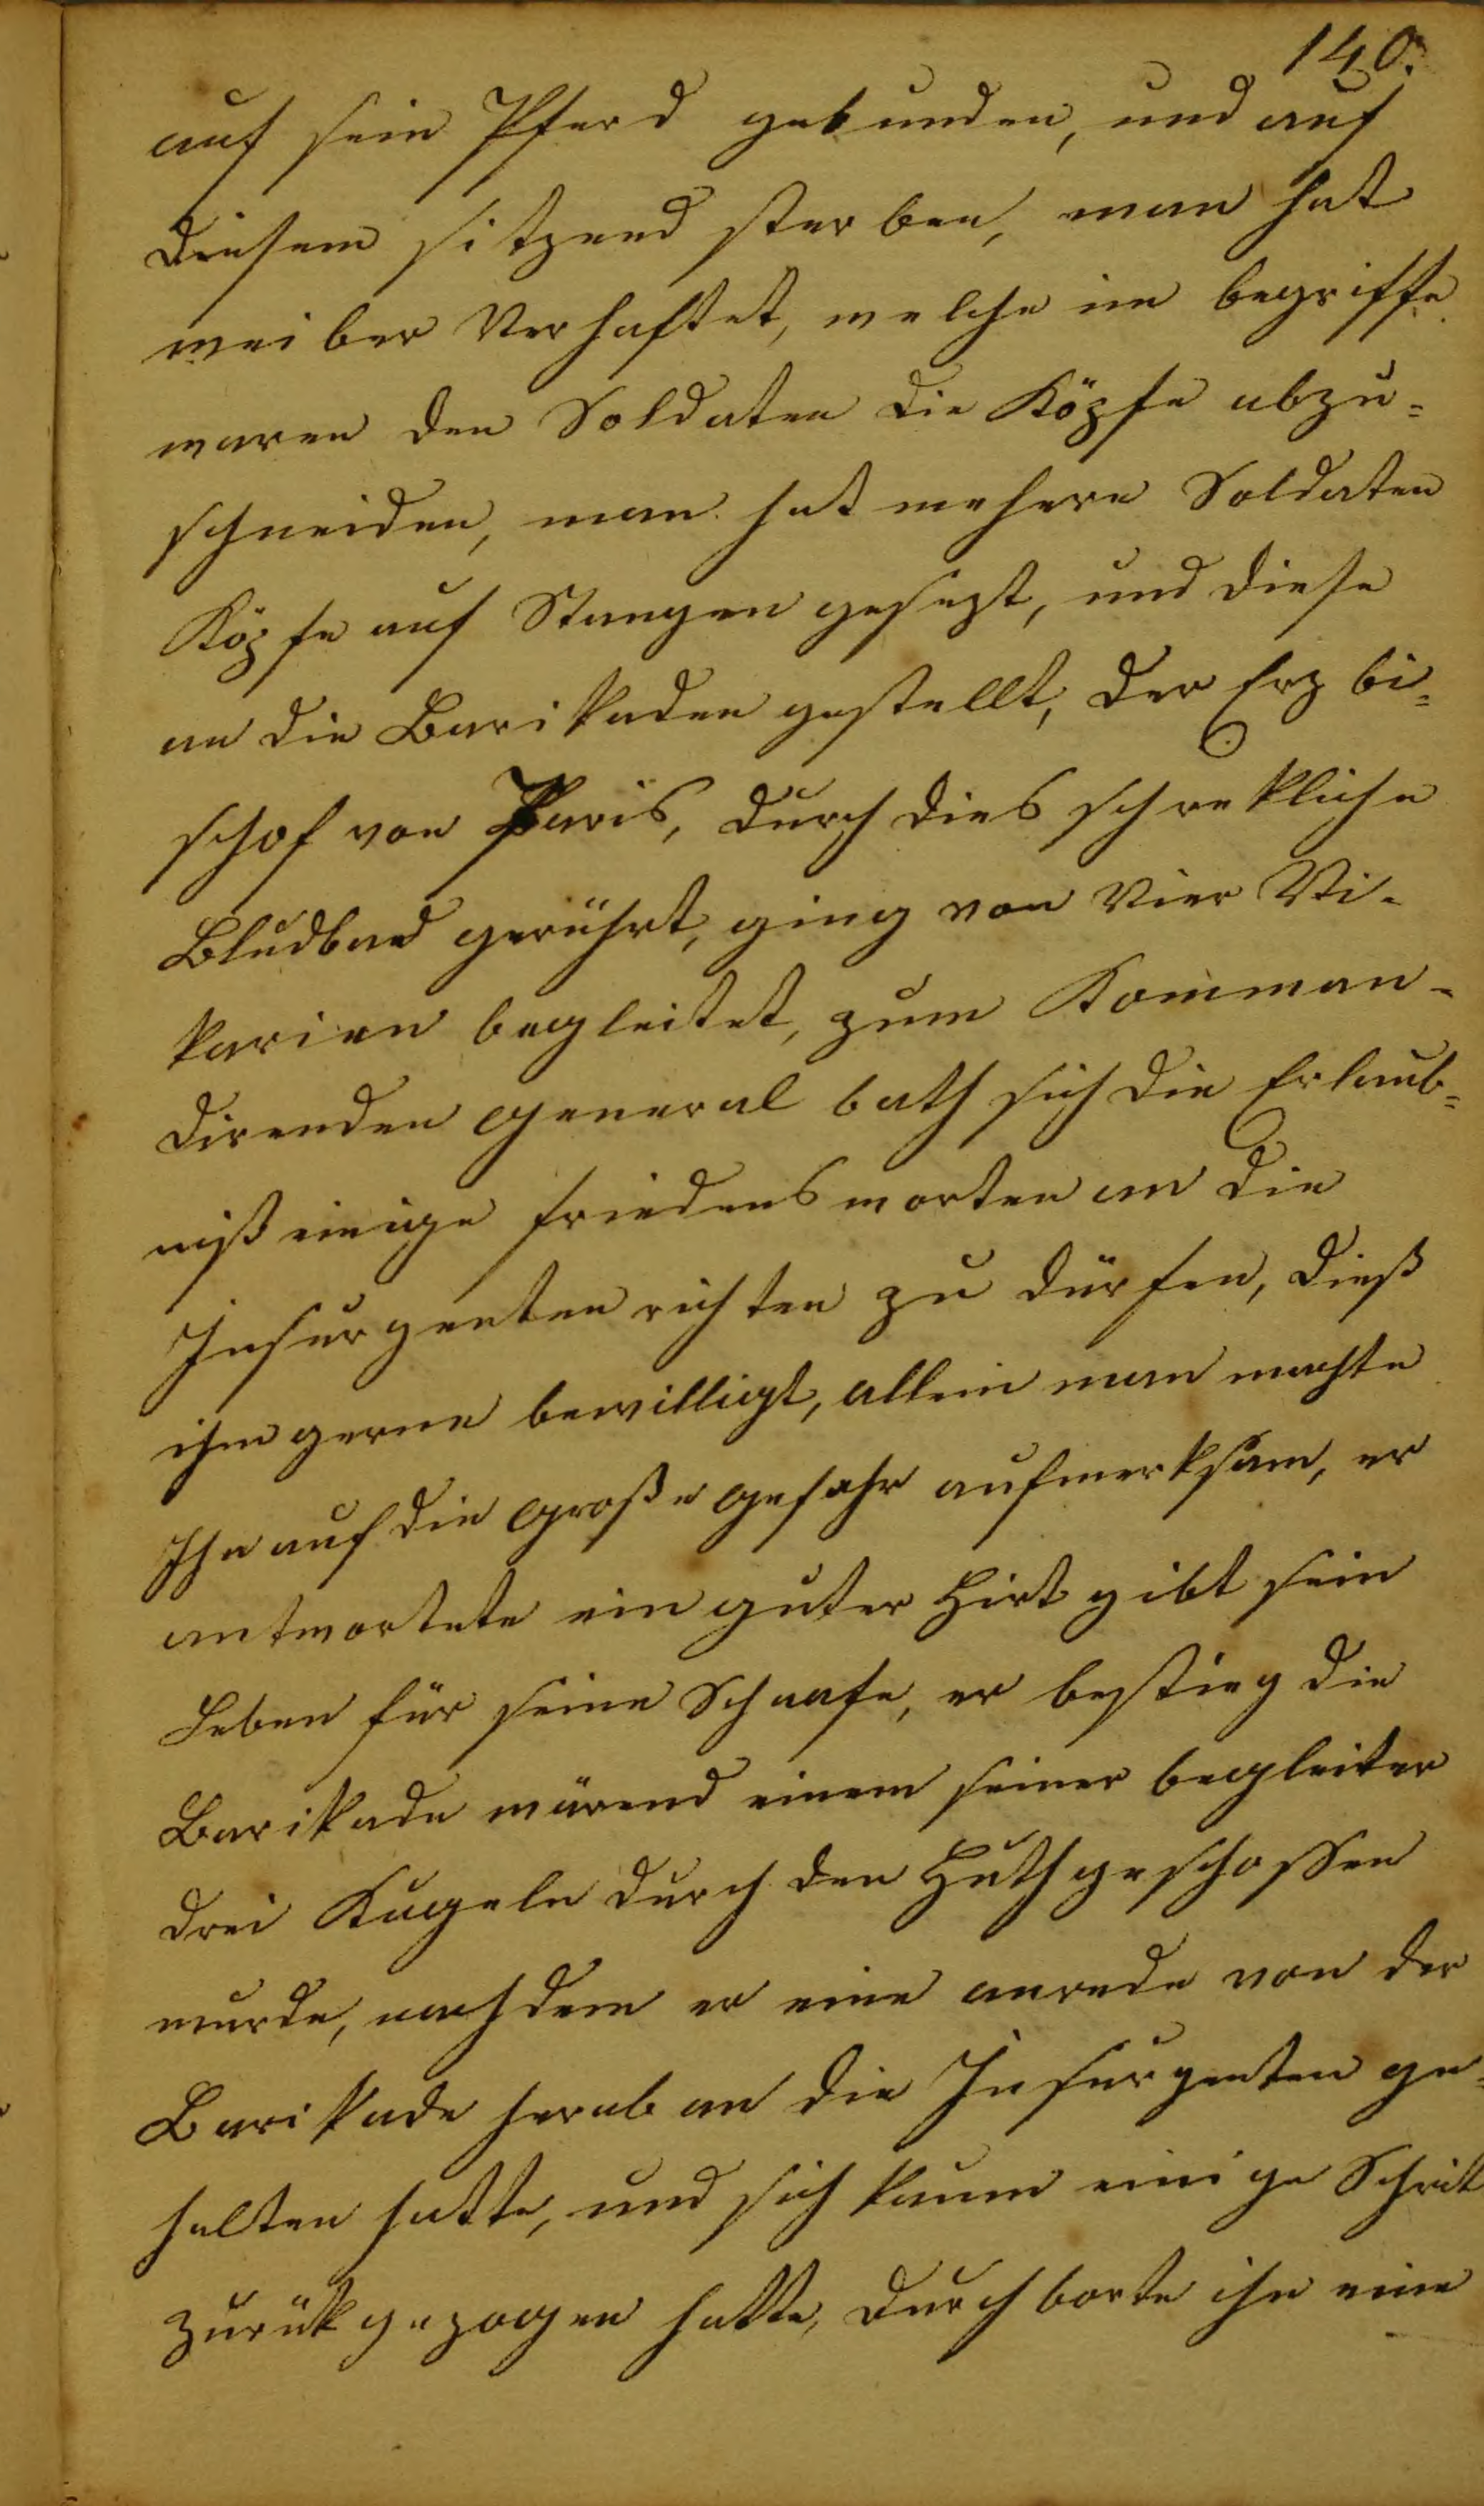 140.
auf sein Pferd gebunden, und auf
diesem sitzend sterben, man hat
weiber Verhaftet, welche im begriffe
waren den Soldaten die Köpfe abzu=
schneiden, man hat mehere Soldaten
Köpfe auf Stangen gesezt, und diese
an die Barikaden gestellt, der Erz bi=
schof von Paris, durch dies schrekliche
Bludbad gerührt, ging von Vier Vi=
karien begleitet, zum Komman=
direnden General bath sich die Erlaub=
niß einige friedens worten an die
Insurgenten richten zu dürfen, dieß
ihm gerne bewilligt, allein man machte
Ihn auf die Große Gefahr aufmerksam, er
antwortete ein guter Hirt gibt sein
Leben für seine Schaafe, er bestieg die
Barikade wärend einem seiner begleiter
drei Kugeln durch den Huth geschossen
wurde, nachdem er eine anrede von der
Barikade herab an die Insurgenten ge=
halten hatte, und sich kaum einige Schritt
zurük gezogen hatte, durchborte ihn eine